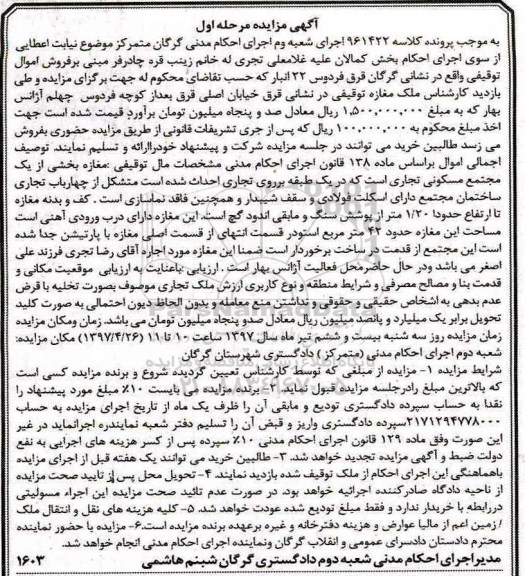 آگهی مزایده مرحله اول
به موجب پرونده کلاسه ۹۶۱۴۲۲ اجرای شعبه وم اجرای احکام مدنی گرگان متمرکز موضوع نیابت اعطایی
از سوی اجرای احکام بخش کمالان علیه غلامعلی تجری له خانم زینب قره چادرفر مبنی برفروش اموال
توقیفی واقع در نشانی گرگان قرق فردوس ۲۲ انبار که حسب تقاضای محکوم له جهت برگزای مزایده و طی
بازدید کارشناس ملک مغازه توقیفی در نشانی قرق خیابان اصلی قرق بعداز کوچه فردوس چهلم آژانس
بهار که به مبلغ ۱,۵۰۰,۰۰۰,۰۰۰ ریال معادل صد و پنجاه میلیون تومان برآورد قیمت شده است جهت
اخذ مبلغ محکوم به ۱۰۰,۰۰۰,۰۰۰ ریال که پس از جری تشریفات قانونی از طریق مزایده حضوری بفروش
می رسد طالبین خرید می توانند در جلسه مزایده شرکت و پیشنهاد خودراارائه و تسلیم نمایند. توصیف
اجمالی اموال براساس ماده ۱۳۸ قانون اجرای احکام مدنی مشخصات مال توقیفی :مغازه بخشی از یک
مجتمع مسکونی تجاری است که در یک طبقه برروی تجاری احداث شده است متشکل از چهارباب تجاری
ساختمان مجتمع دارای اسکلت فولادی و سقف شیبدار و همچنین فاقد نماسازی است . کف و بدنه مغازه
تا ارتفاع حدودا ۱/۲۰ متر از پوشش سنگ و مابقی اندود گچ است. این مغازه دارای درب ورودی آهنی است
مساحت این مغازه حدود ۴۳ متر مربع استودر قسمت انتهای از قسمت اصلی مغازه با پارتیشن جدا شده
است این مجتمع از قدمت در ساخت برخوردار است ضمنا این مغازه مورد اجاره آقای رضا تجری فرزند علی
اصغر می باشد ودر حال حاضر محل فعالیت آژانس بهار است . ارزیابی :باعنایت به ارزیابی موقعیت مکانی و
قدمت بنا و مصالح مصرفی و شرایط منطقه و نوع کاربری ارزش ملک تجاری موصوف بصورت تخلیه با قرض
عدم بدهی به اشخاص حقیقی و حقوقی و نداشتن منع معامله و بدون الحاظ دیون احتمالی به صورت کلید
تحویل برابر یک میلیارد و پانصد میلیون ریال معادل صدو پنجاه میلیون تومان می باشد. زمان ومکان مزایده
زمان مزایده روز سه شنبه بیست و ششم تیر ماه سال ۱۳۹۷ ساعت ۱۰ تا ۱۱ (۱۳۹۷/۴/۲۶) مکان مزایده:
شعبه دوم اجرای احکام مدنی (متمرکز) دادگستری شهرستان گرگان
شرایط مزایده ۱- مزایده از مبلغی که توسط کارشناس تعیین گردیده شروع و برنده مزایده کسی است
که بالاترین مبلغ رادرجلسه مزایده قبول نماید. ۲- برنده مزایده می بایست ۱۰٪ مبلغ مورد پیشنهاد را
نقدا به حساب سپرده دادگستری تودیع و مابقی آن را ظرف یک ماه از تاریخ اجرای مزایده به حساب
۲۱۷۱۲۹۴۷۷۸۰۰۰سپرده دادگستری واریز و قبض آن را تسلیم دفتر شعبه نماینددر اجرانماید در غیر
این صورت وفق ماده ۱۲۹ قانون اجرای احکام مدنی ۱۰٪ سپرده پس از کسر هزینه های اجرایی به نفع
دولت ضبط و آگهی مزایده تجدید خواهد شد. ۳- طالبین خرید می توانند یک هفته قبل از اجرای مزایده
باهماهنگی این اجرای احکام از ملک توقیف شده بازدید نمایند. ۴- تحویل محل پس از تایید صحت مزایده
از ناحیه دادگاه صادرکننده اجرائیه خواهد بود. در صورت عدم تائید صحت مزایده این اجراء مسولیتی
دررابطه با خریدار ندارد و فقط مبلغ تودیع شده عودت خواهد شد. ۵- کلیه هزینه های نقل و انتقال ملک
/ زمین اعم از مالیا عوارض و هزینه دفترخانه و غیره برعهده برنده مزایده است.۶- مزایده با حضور نماینده
محترم دادستان دادسرای عمومی و انقلاب گرگان ونماینده اجرای احکام مدنی انجام خواهد شد.
مدیراجرای احکام مدنی شعبه دوم دادگستری گرگان شبنم هاشمی ۱۶۰۳